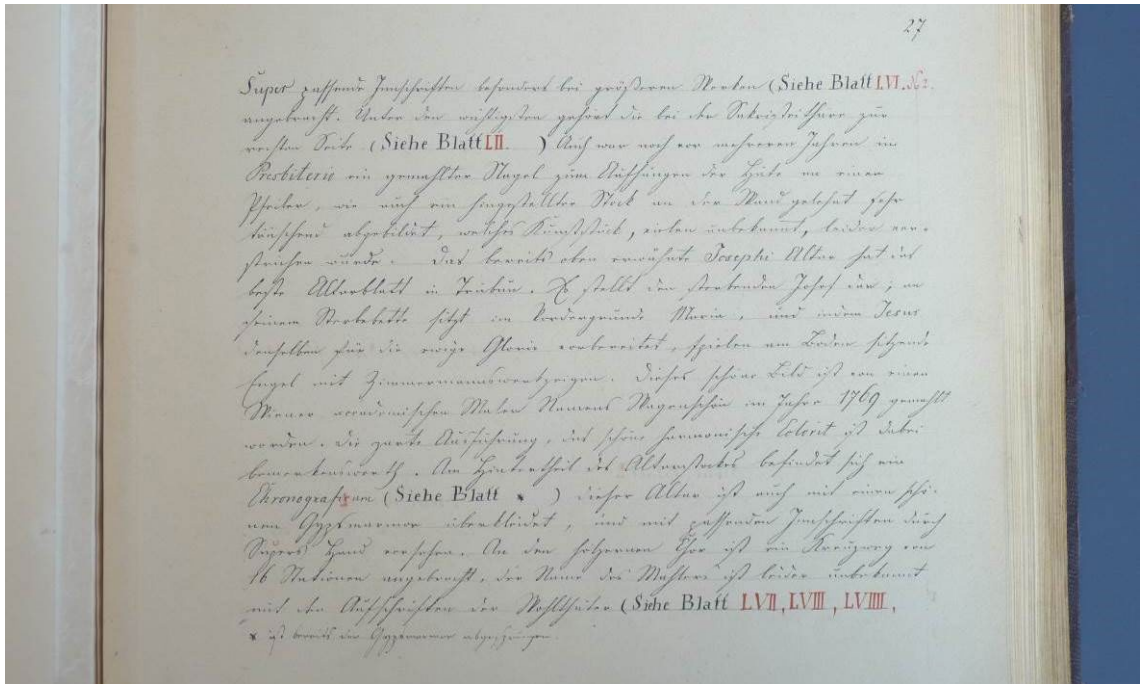 27
Super passende Innschriften besonders bei größeren Werken (Siehe Blatt LVI. No:
angebracht. Unter den wichtigsten gehört die bei der Sakristeithüre zur
rechten Seite (Siehe Blatt LII. ) Auch war noch vor mehreren Jahren im
Presbiterio ein gemahlter Nagel zum Aufhängen der Hüte an einen
Pfeiler, wie auch ein hingestellter Stock an der Wand gelehnt sehr
täuschend abgebildet, welches Kunststück, vielen unbekannt, leider ver-
strichen wurde. Das bereits oben erwähnte Josephi Altar hat das
beste Altarblatt in Tribün. Es stellt den sterbenden Josef dar; an
seinem Sterbebette sitzt im Vordergrunde Maria, und indem Jesus
denselben für die ewige Glorie vorbereitet, spielen am Boden sitzende
Engel mit Zimmermannswerkzeigen. Dieses schöne Bild ist von einen
Wiener accadämischen Maler Namens Wagenschön im Jahre 1769 gemahlt
worden. Die zarte Ausführung, das schöne harmonische Colorit ist dabei
bemerkenswerth. Am Hintertheil des Altarstockes befindet sich ein
Chronograficam (Siehe Blatt × ) dieser Altar ist auch mit einen schö-
nem Gypsmarmor überkleidet, und mit passenden Innschriften durch
Supers Hand versehen. An den hölzernen Chor ist ein Kreuzweg von
16 Stationen angebracht, der Name des Mahlers ist leider unbekannt
mit den Aufschriften der Wohlthäter (Siehe Blatt LVII, LVIII, LVIIII,
× ist bereits der Gypsmarmor abgesprungen.